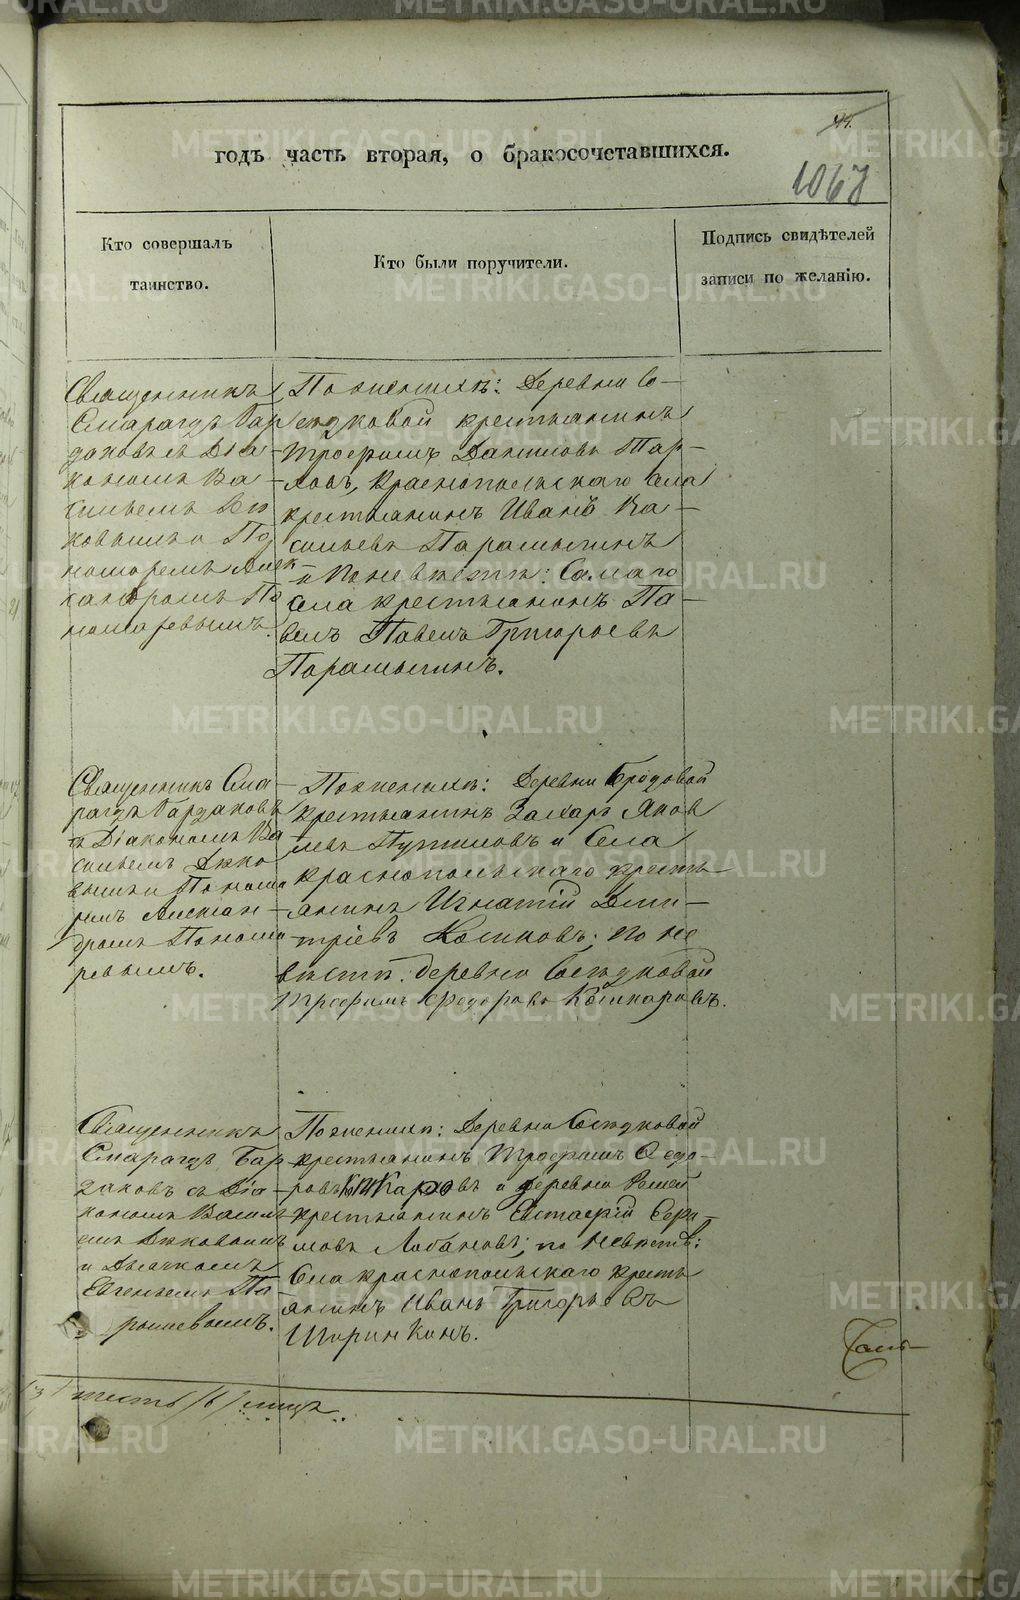 44.
годъ часть вторая, о бракосочетавшихся.
1067
Кто совершалъ
таинство.
Кто были поручители.
Подпись свидѣтелей
записи по желанію.
Священникъ
Смарагдъ Бар
даковъ съ Діа-
кономъ Ва-
сильемъ
ковымъ и По
номаремъ Алек-
сандромъ По
номаревымъ.
По женихѣ: Деревни Со-
сѣдковой крестьянинъ
Трофимъ Даниловъ Тар-
ховъ, Краснопольскаго Села
крестьянинъ Иванъ Ва-
сильевъ Парамыгинъ
и По невѣстѣ: Самаго
Села крестьянинъ Па-
велъ Павелъ Григорьевъ
Парамыгинъ.
Священникъ Сма-
рагдъ Бардаковъ
съ Діакономъ Ва
сильемъ
вымъ и Понома
ремъ Алексан-
дромъ Понома
ревымъ.
По женихѣ: Деревни Бродовой
крестьянинъ Захаръ Яков
левъ Путиловъ и Села
Краснопольскаго кресть
янинъ Игнатій Дми-
тріевъ Косиковъ; по не
вѣстѣ: деревни Сосѣдковой
Трофимъ Федоровъ Кошкаровъ.
Священникъ
Смарагдъ Бар
даковъ съ Діа-
кономъ Василь
емъ
и Дьячкомъ
Евгеньемъ Па-
рышевымъ.
По женихѣ: Деревни Сосѣдковой
крестьянинъ Трофимъ Ѳедо-
ровъ Кошкаровъ и деревни
крестьянинъ Евстафій Ефи-
мовъ Лобановъ; по Невѣстѣ:
Села Краснопольскаго кресть
янинъ Иванъ Григорьевъ
Ширинкинъ.
шесть /6/ лицъ
METRIKI.GASO-URAL.RU